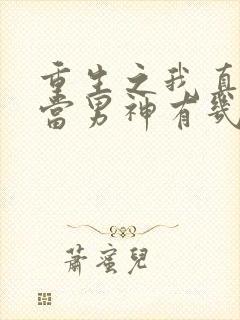 重生之我真
當男神有幾
蕭蜜兒